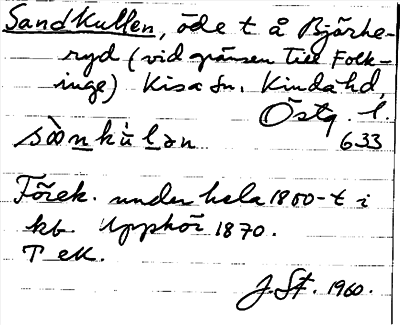 Sandkullen, öde t å Björke-
ryd (vid gränsen till Folk-
inge) Kisa sn, Kinda hd,
Östg. l.
sànkùlən 633
Förek. under hela 1800-t i
kb. Upphör 1870.
T ek.
J. St. 1960.